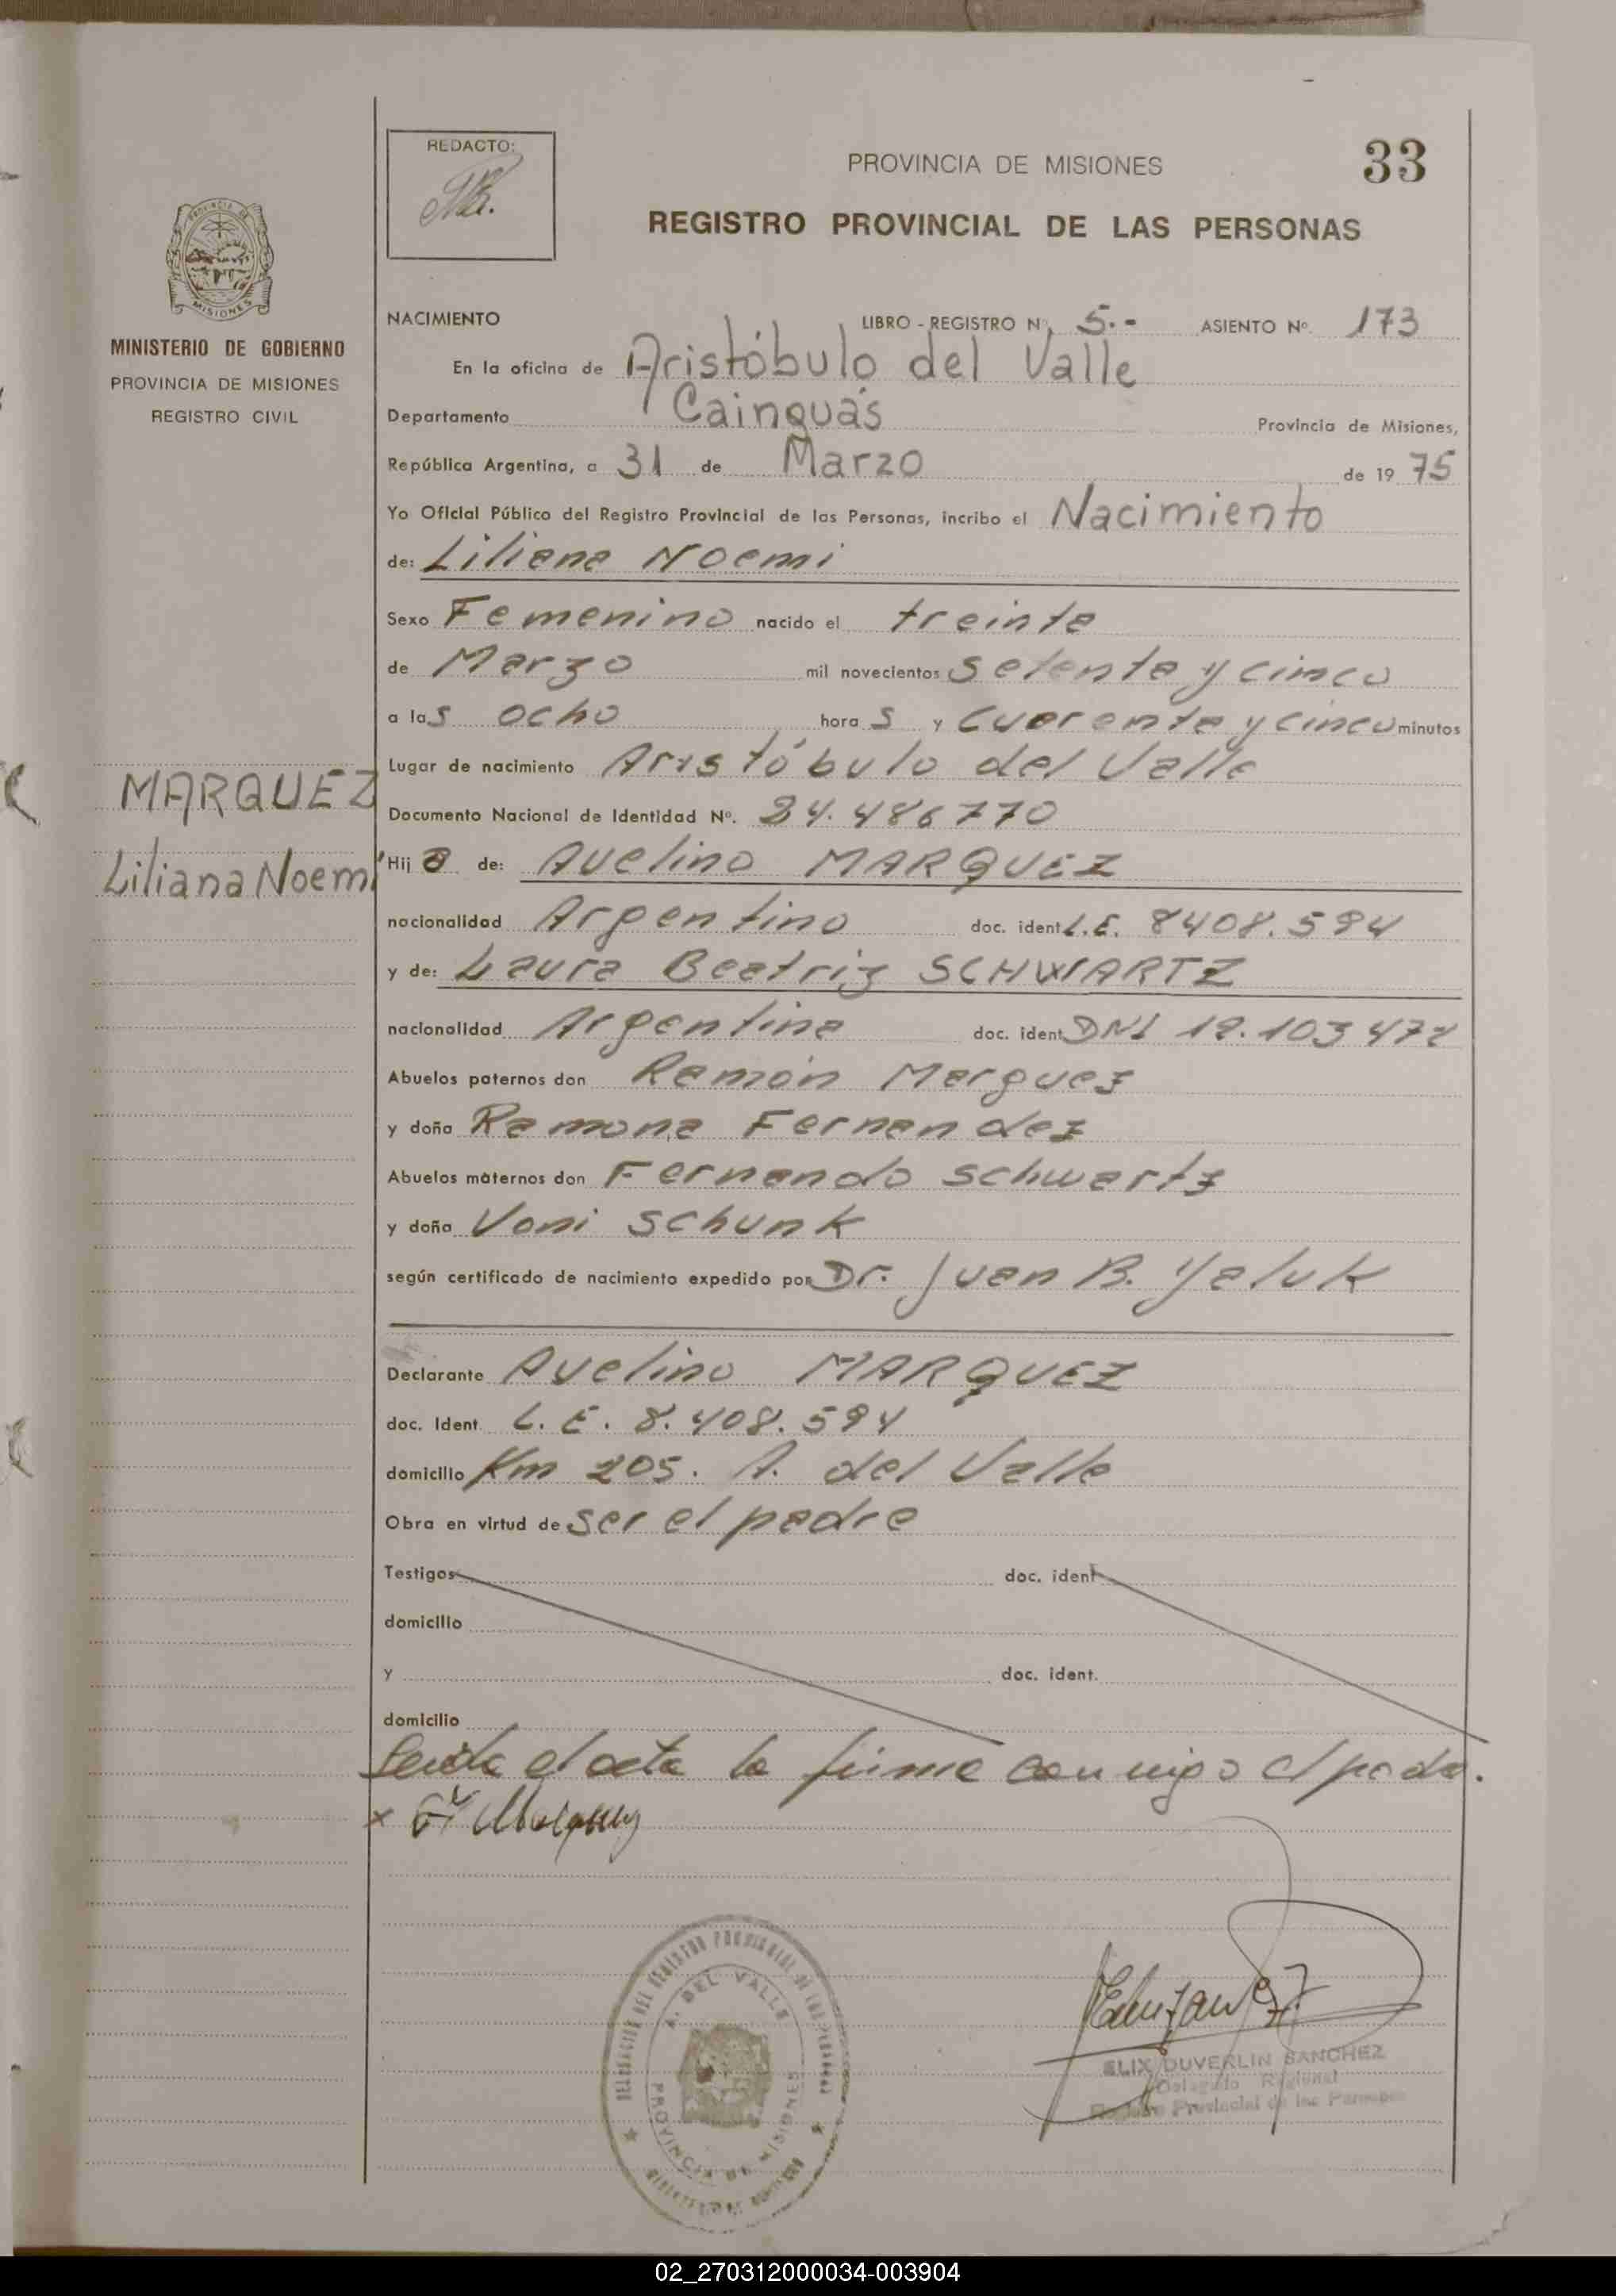 REDACTO:
PROVINCIA DE MISIONES
33
REGISTRO PROVINCIAL DE LAS PERSONAS
PROVINCIA DE
MISIONES
MINISTERIO DE GOBIERNO
PROVINCIA DE MISIONES
REGISTRO CIVIL
MARQUEZ
Liliana Noemí
NACIMIENTO LIBRO - REGISTRO Nº. 5.- ASIENTO Nº. 173
En la oficina de Aristóbulo del Valle
Departamento Cainguás Provincia de Misiones,
República Argentina, a 31 de Marzo de 19 75
Yo Oficial Público del Registro Provincial de las Personas, incribo el Nacimiento
de: Liliana Noemi
Sexo Femenino nacido el treinta
de Marzo mil novecientos setenta y cinco
a las ocho hora s y cuarenta y cinco minutos
Lugar de nacimiento Aristóbulo del Valle
Documento Nacional de Identidad Nº. 24.486770
Hij a de: Avelino MARQUEZ
nacionalidad Argentino doc. ident L.E. 8408.594
y de: Laura Beatriz SCHWARTZ
nacionalidad Argentina doc. ident DNI
Abuelos paternos don Ramón Marquez
y doña Ramona Fernandez
Abuelos maternos don Fernando Schwartz
y doña Voni Schunk
según certificado de nacimiento expedido por Dr. Juan B. Yaluk
Declarante Avelino MARQUEZ
doc. Ident. L. E. 8.408.594
domicilio Km 205. A. del Valle
Obra en virtud de ser el padre
Testigos doc. ident
domicilio
y doc. ident.
domicilio
Leida el acta la firma conmigo el padre.
x
DELEGACION DEL REGISTRO PROVINCIAL DE LAS PERSONAS
A. DEL VALLE
PROVINCIA DE MISIONES
ELIX DUVERLIN SANCHEZ
Delegado Regional
Registro Provincial de las Personas
02_270312000034-003904